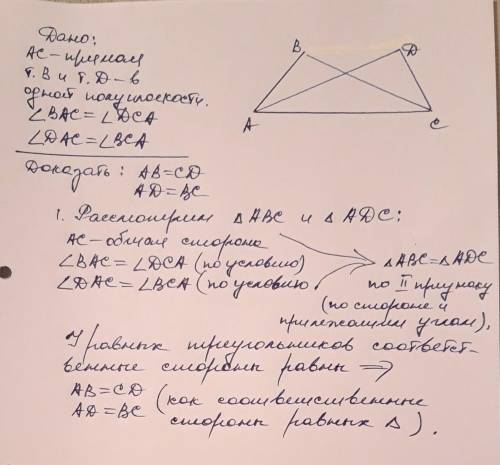 Дано:
АС - прямая
т. В и т. D - в
одной полуплоскости.
∠BAC = ∠DCA
∠DAC = ∠BCA
Доказать: AB = CD
AD = BC
B
D
A
C
1. Рассмотрим △ABC и △ADC:
АС - общая сторона
∠BAC = ∠DCA (по условию)
∠DAC = ∠BCA (по условию)
△ABC = △ADC
по II признаку
(по стороне и
прилежащим углам).
У равных треугольников соответст-
венные стороны равны ⇒
AB = CD
AD = BC (как соответственные
стороны равных △).